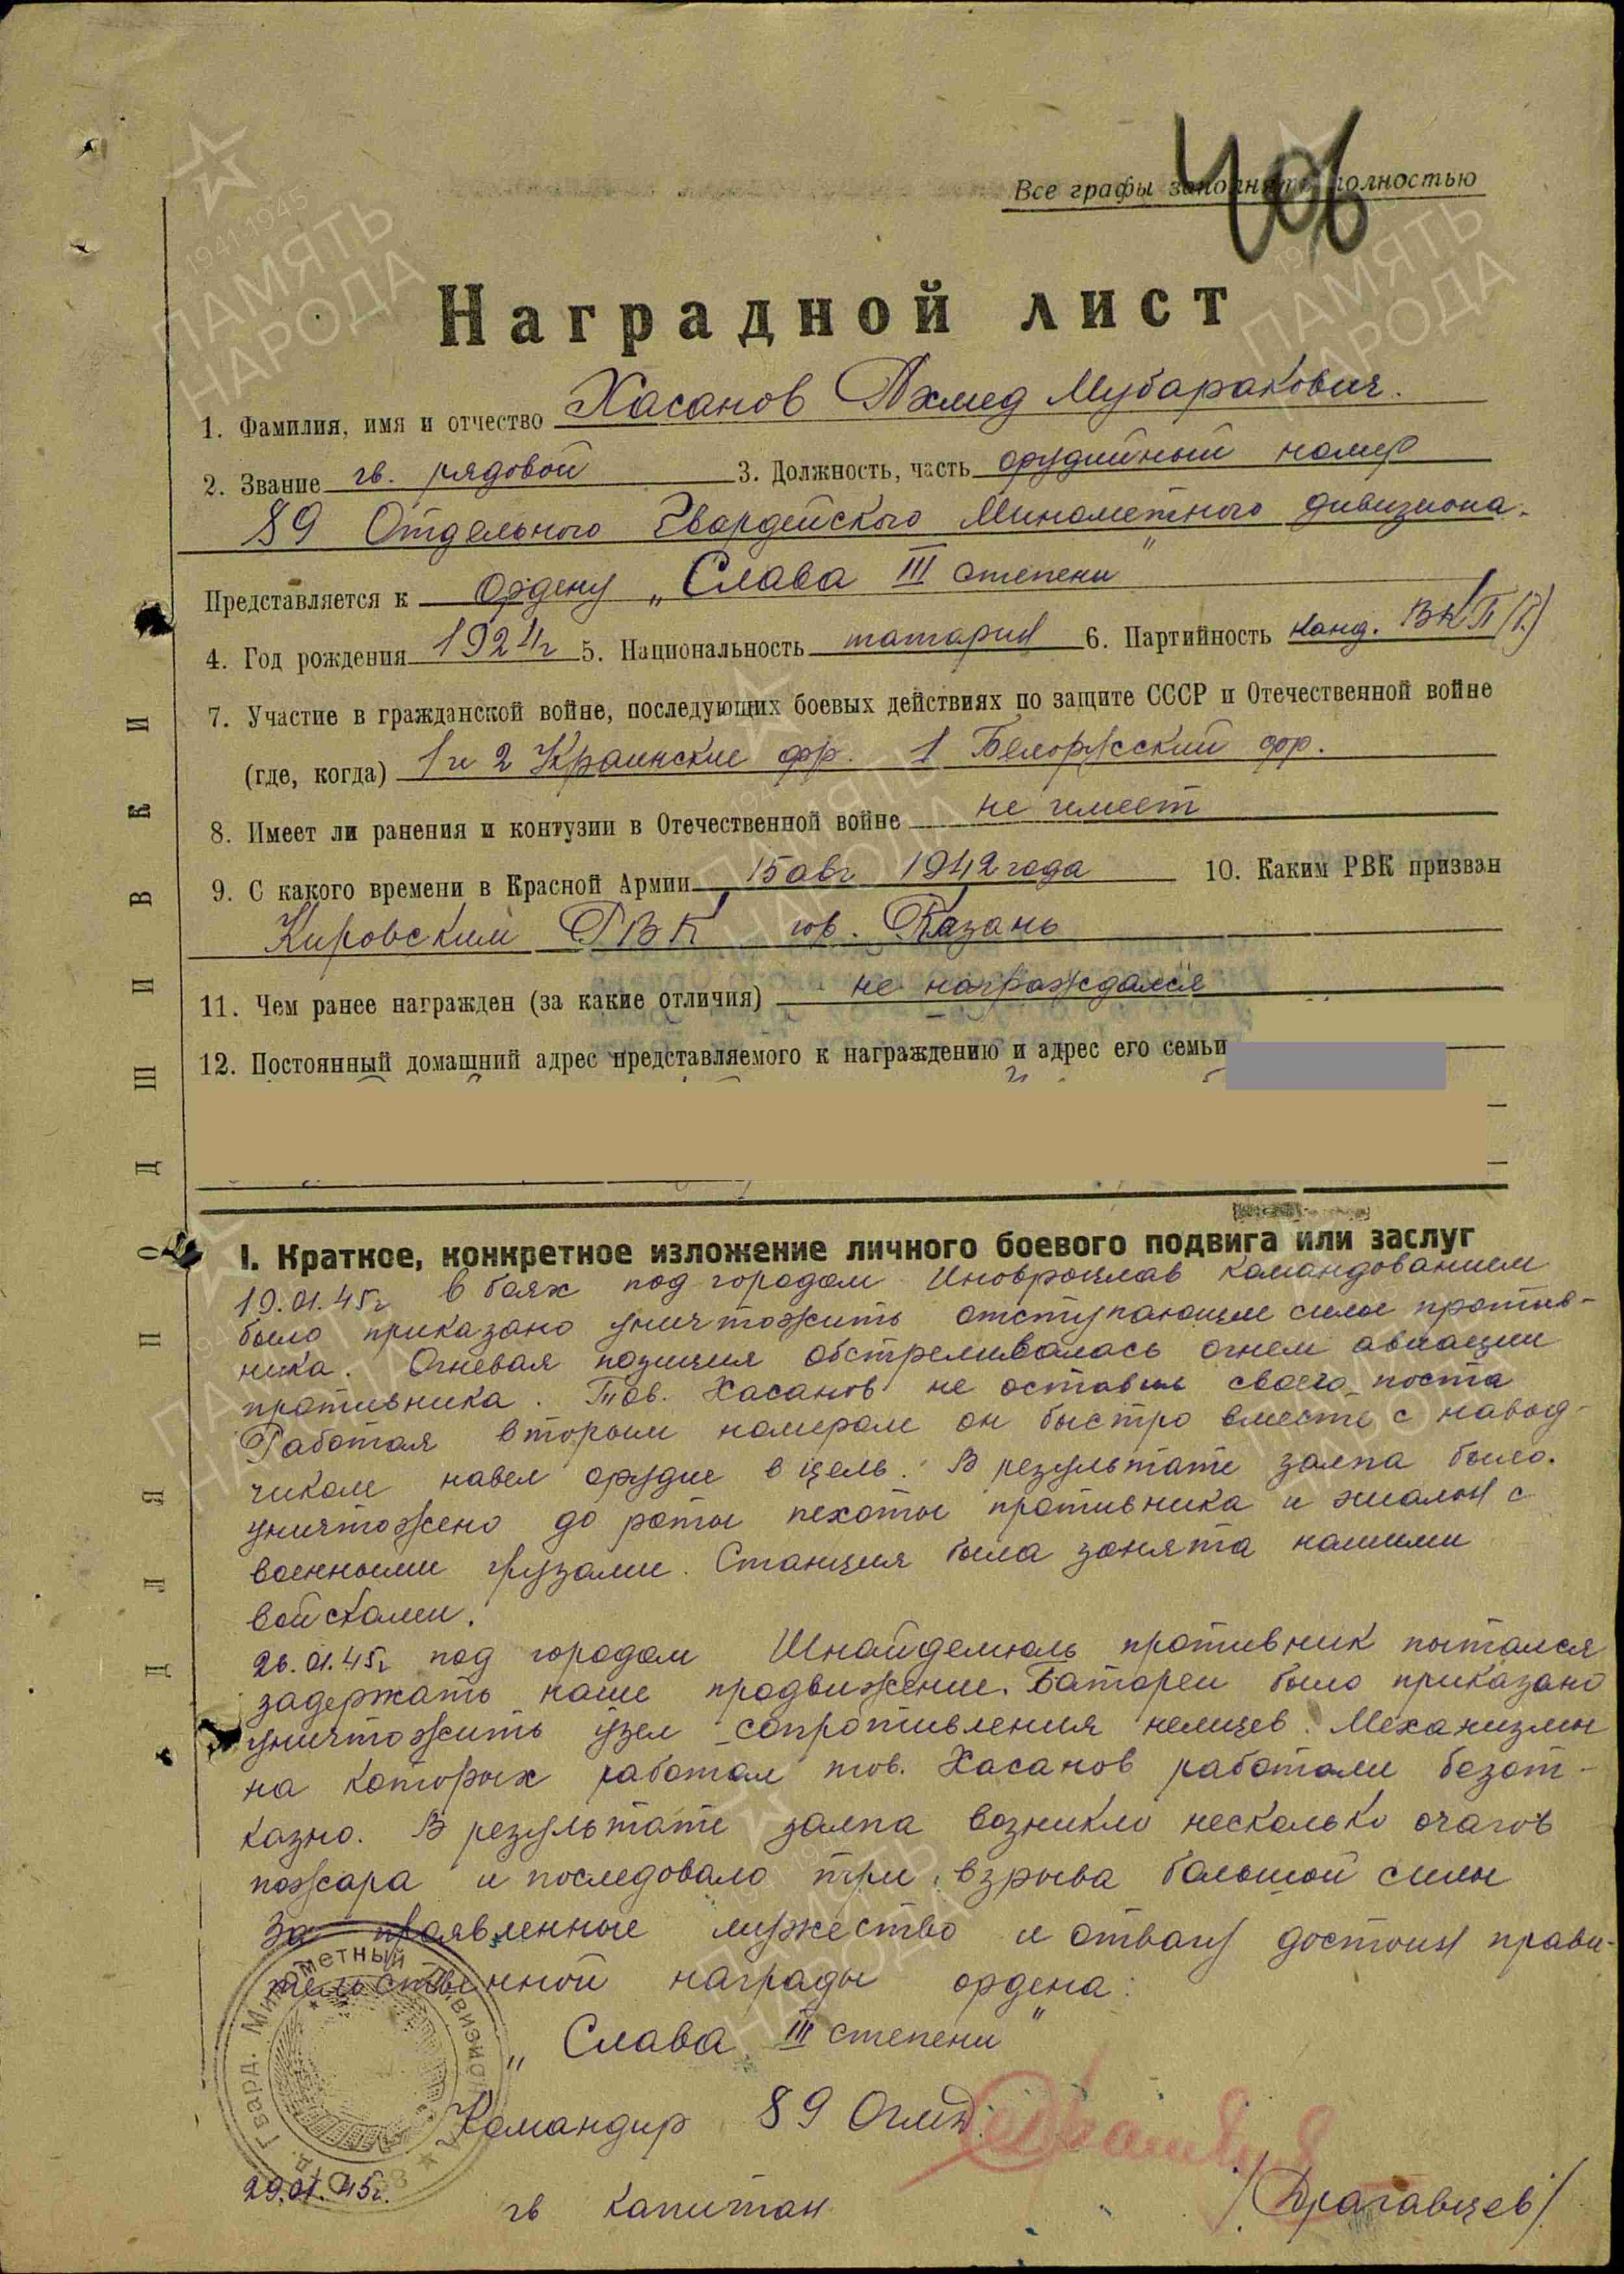 406
Все графы заполнять полностью
Наградной лист
1. Фамилия, имя и отчество Хасанов Ахмед Мубаракович.
2. Звание гв. рядовой 3. Должность, часть орудийный номер
89 Отдельного Гвардейского Минометного дивизиона.
Представляется к ордену „Слава III степени"
4. Год рождения 1924г 5. Национальность татарин 6. Партийность канд. ВКП(б)
7. Участие в гражданской войне, последующих боевых действиях по защите СССР и Отечественной войне
(где, когда) 1 и 2 Краинские фр. 1 Белорусский фр.
8. Имеет ли ранения и контузии в Отечественной войне не имеет
9. С какого времени в Красной Армии 15 авг 1942 года 10. Каким РВК призван
Кировским РВК гор. Казань
11. Чем ранее награжден (за какие отличия) не награждался
12. Постоянный домашний адрес представляемого к награждению и адрес его семьи
I. Краткое, конкретное изложение личного боевого подвига или заслуг
19.01.45г в боях под городом Иновроцлав командованием
было приказано уничтожить отступающие силы против-
ника. Огневая позиция обстреливалась огнем авиации
противника. Тов. Хасанов не оставил своего поста
Работая вторым номером он быстро вместе с навод-
чиком навел орудие в цель. В результате залпа было
уничтожено до роты пехоты противника и эшалон с
военными грузами. Станция была занята нашими
войсками.
26.01.45г под городом Шнайдемюль противник пытался
задержать наше продвижение. Батареи было приказано
уничтожить узел сопротивления немцев. Механизмы
на которых работал тов. Хасанов работали безот-
казно. В результате залпа возникло несколько очагов
пожара и последовало три взрыва большой силы
За проявленные мужество и отвагу достоин прави-
тельственной награды ордена:
„Слава III степени"
Командир 89 Огмд.
гв капитан /Драгавцев/
29.01.45г.
ДЛЯ ПОДШИВКИ
Отд. Гвард. Минометный Дивизион
1941-1945
ПАМЯТЬ
НАРОДА